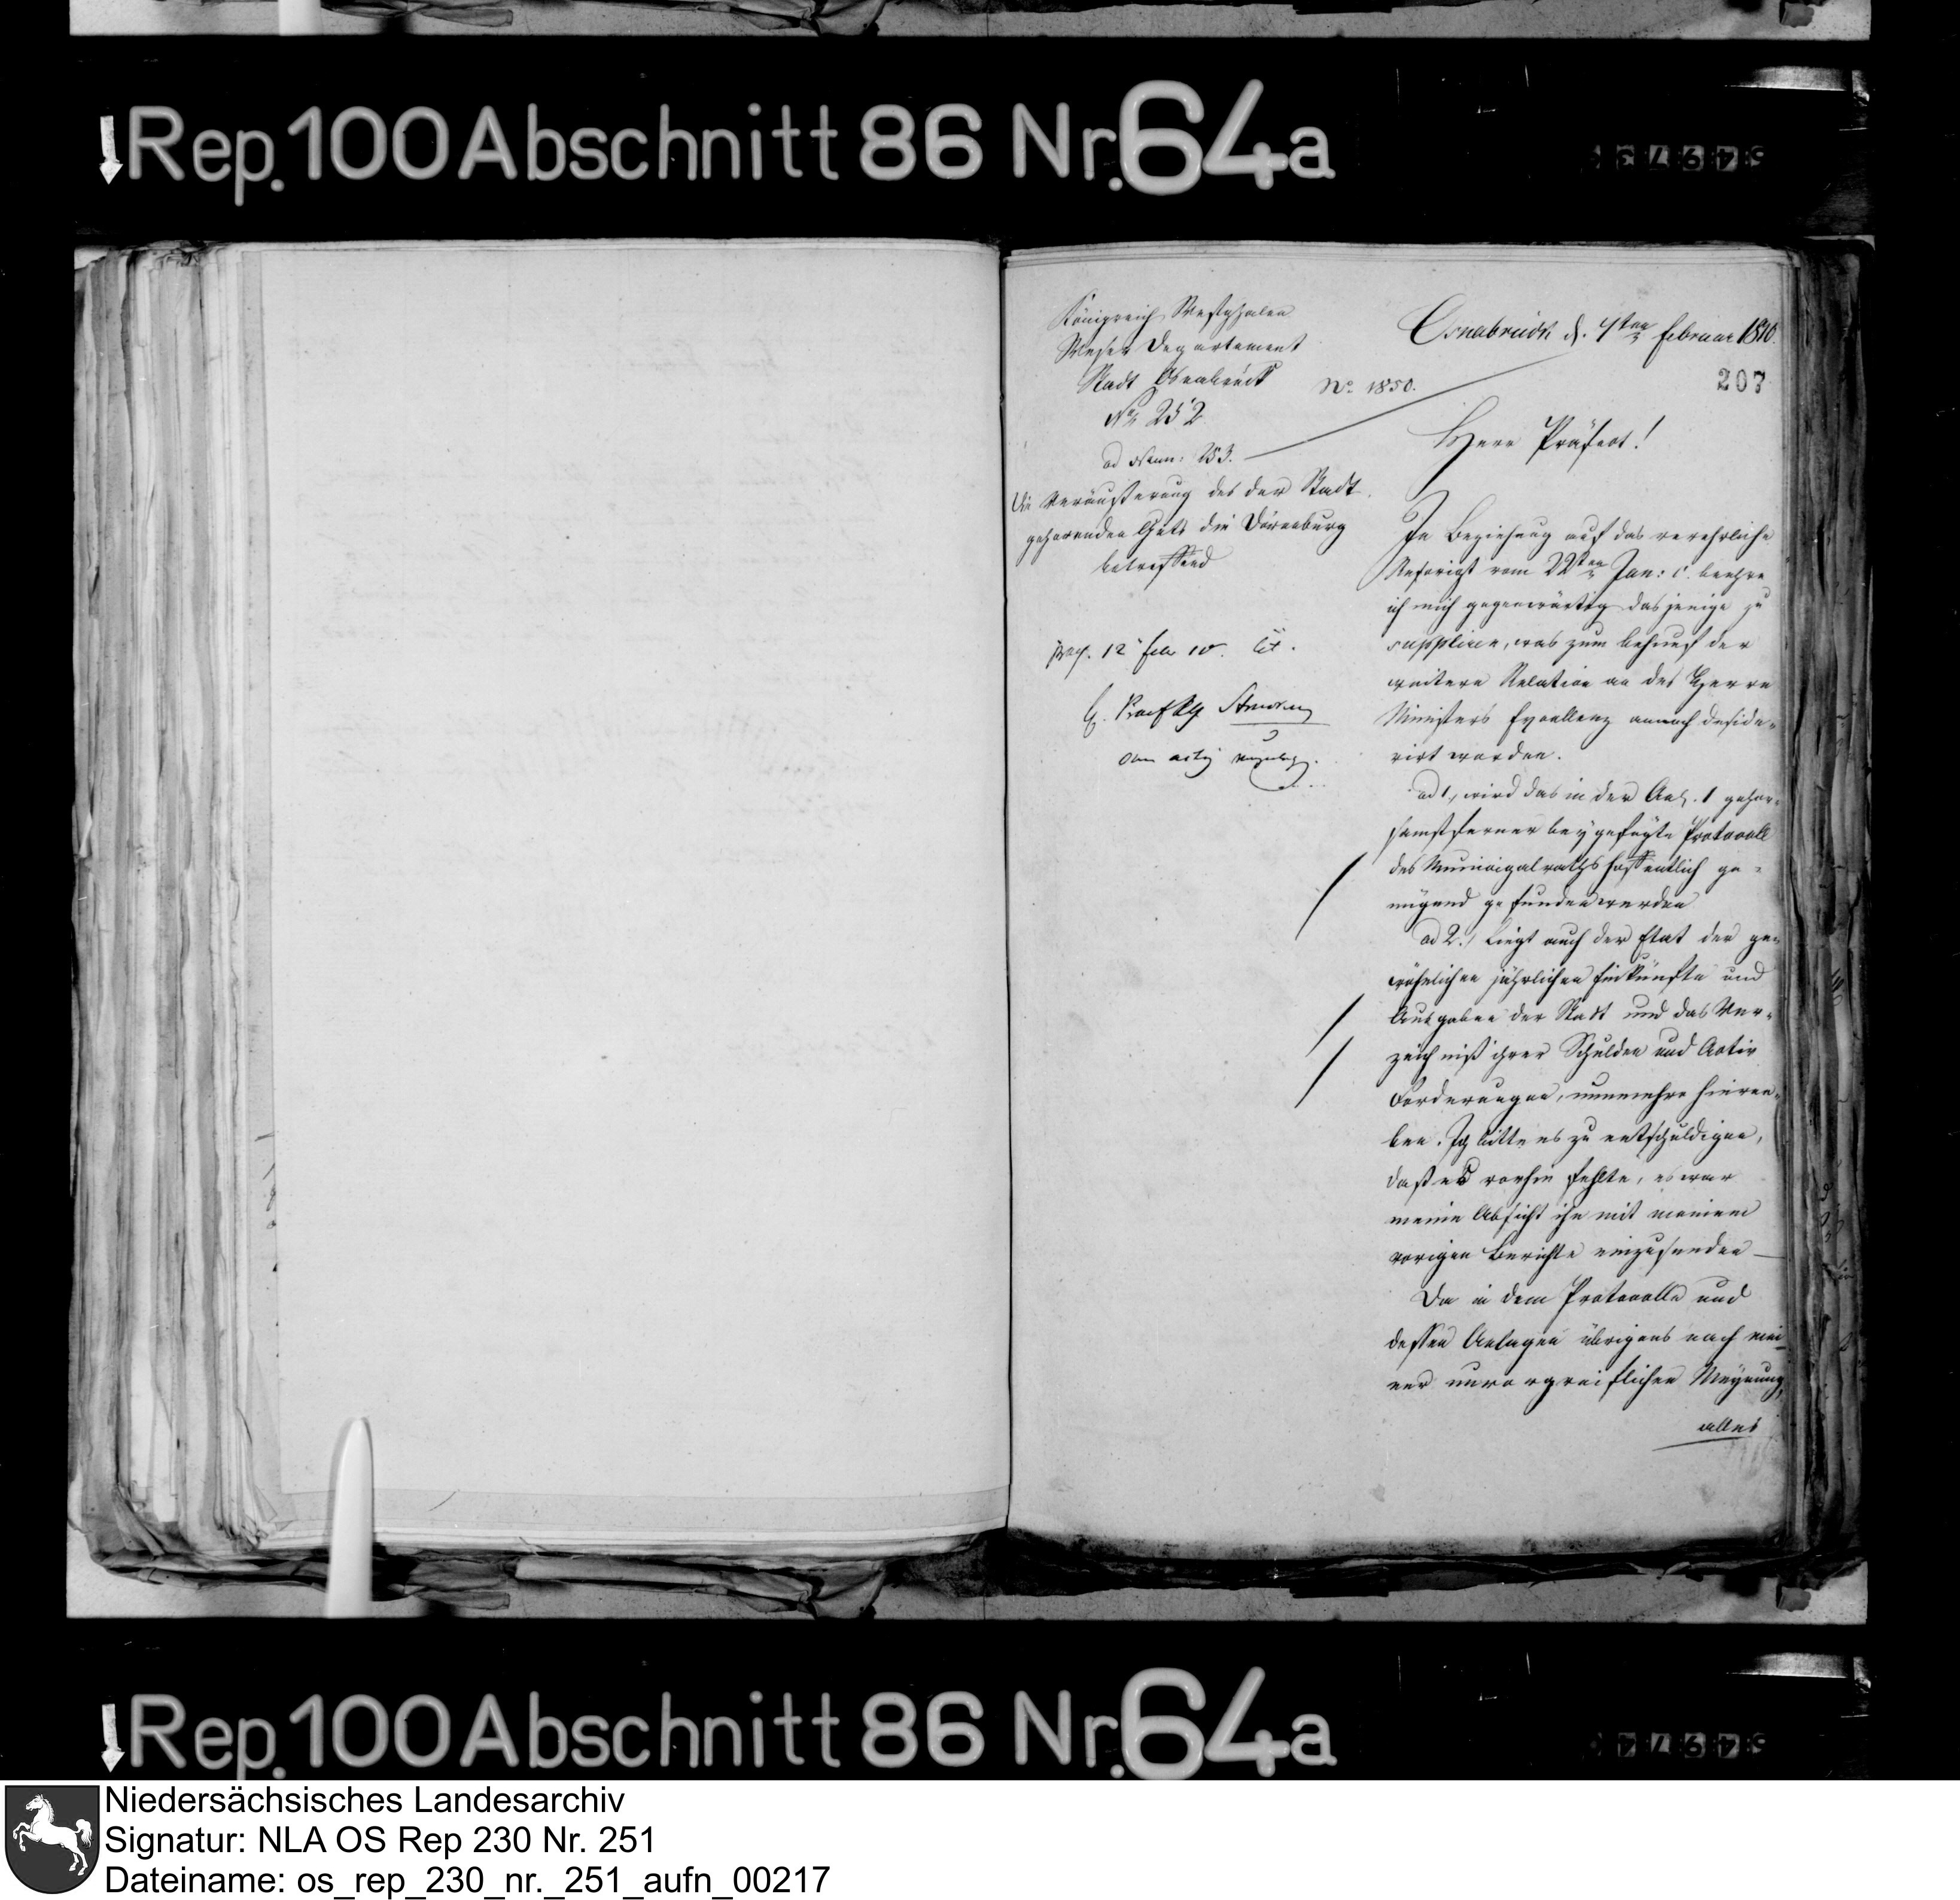 Rep. 100 Abschnitt 86 Nr. 64a
Königreich Westphalen
Weser Departement
Stadt Osnabrück
No 252
ad Num: 253.
Die Veräußerung des der Stadt
gehörenden Guts die Dörenburg
betreffend
No 1850.
Osnabrück d. 4ten Februar 1810.
207
Herr Präfect!
In Beziehung auf das verehrliche
Rescript vom 22ten Jan: c. beehre
ich mich gegenwärtig dasjenige zu
suppliren, was zum Behuef der
weitern Relation an des Herrn
Ministers Excellenz annoch deside-
rirt worden.
ad 1, wird das in der Anl. 1 gehor-
samst ferner beygefügte Protocoll
des Municipalraths hoffentlich ge-
nügend gefunden werden
ad 2./ liegt auch der Etat der ge-
wöhnlichen jährlichen Einkünfte und
Ausgaben der Stadt und das Ver-
zeichniß ihrer Schulden und Activ
Forderungen, nunmehro hierne-
ben. Ich bitte es zu entschuldigen,
daß es vorhin fehlte, es war
meine Absicht ihn mit meinem
vorigen Berichte einzusenden —
Da in dem Protocolle und
dessen Anlagen übrigens nach mei-
ner unvorgreiflichen Meynung,
alles
Rep. 100 Abschnitt 86 Nr. 64a
Niedersächsisches Landesarchiv
Signatur: NLA OS Rep 230 Nr. 251
Dateiname: os_rep_230_nr._251_aufn_00217